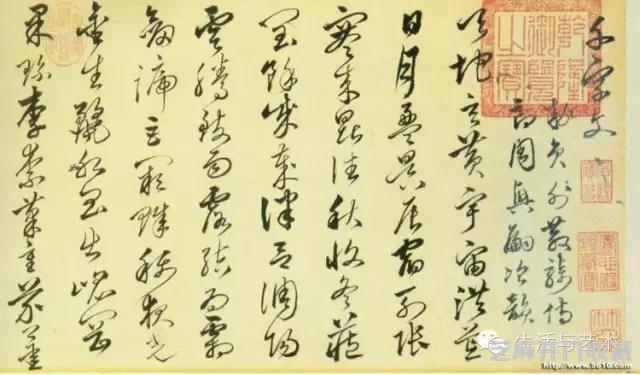 千字文
敕員外散騎侍
郎周興嗣次韻
天地玄黃宇宙洪荒
日月盈昃辰宿列張
寒來暑往秋收冬藏
閏餘成歲律呂調陽
雲騰致雨露結為霜
劒號巨闕珠稱夜光
金生麗水玉出崑岡
果珍李柰菜重芥薑
乾隆御覽之寶
生活与艺术
http://www.9610.com